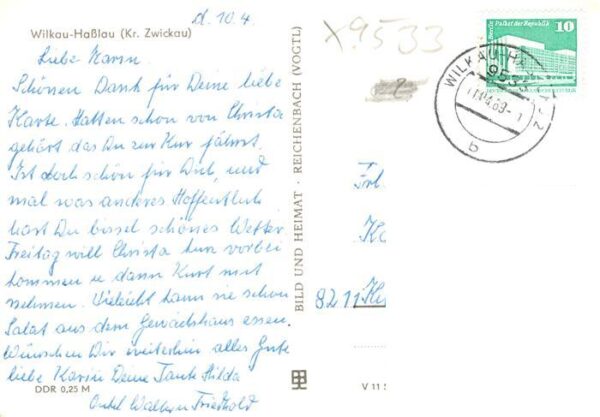 d. 10.4.
Wilkau-Haßlau (Kr. Zwickau)
Liebe Karin.
Schönen Dank für Deine liebe
Karte. Hatten schon von Christa
gehört das Du zur Kur fährst.
Ist doch schön für Dich, und
mal was anderes Hoffentlich
hast Du bissel schönes Wetter.
Freitag will Christa vorbei
kommen u dann Kurt mit
nehmen. Vieleicht kann sie schon
Salat aus dem Gewächshaus essen.
Wünschen Dir weiterhin alles Gute
liebe Karin Deine Tante Hilda
Onkel Friedhold
DDR 0,25 M
BILD UND HEIMAT · REICHENBACH (VOGTL)
V 11
X 9533
Palast der Republik
10
WILKAU-HA
9533
b
Frl.
8211